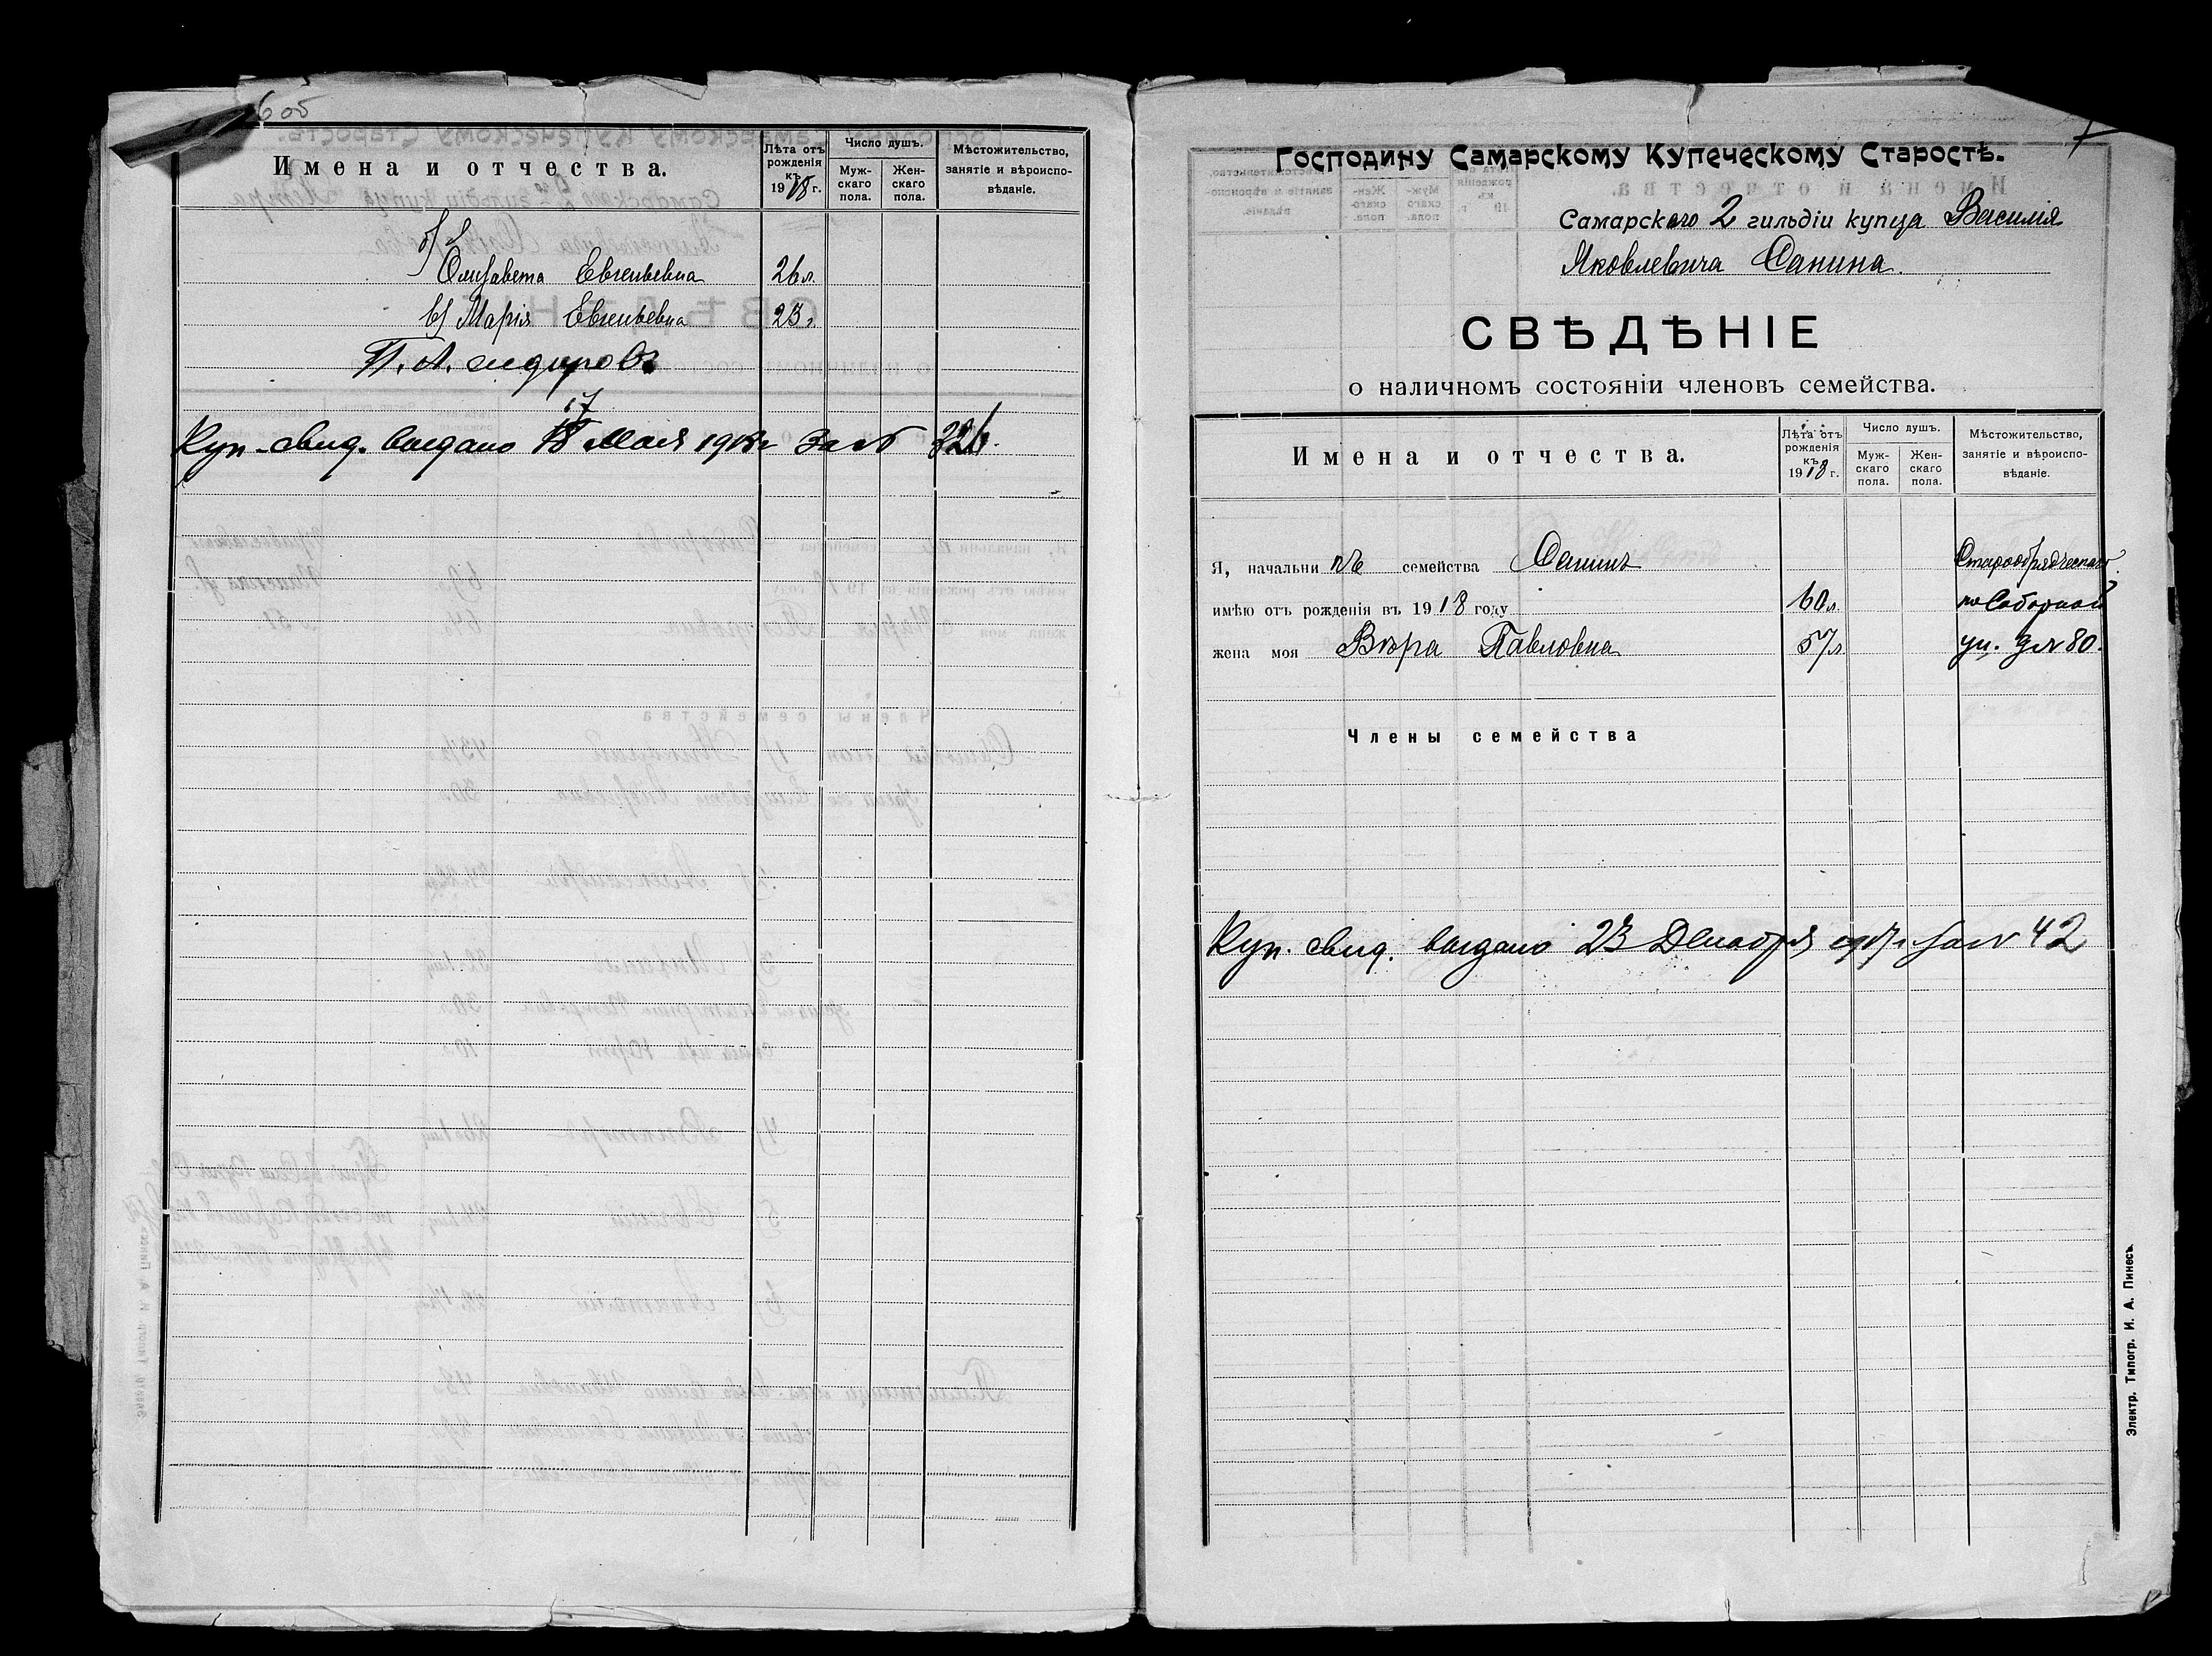 6 об
Имена и отчества.
Лѣта отъ рожденія къ 1918 г.
Число душъ.
Муж-
скаго
пола.
Жен-
скаго
пола.
Мѣстожительство,
занятіе и вѣроиспо-
вѣданіе.
б)
Елизавета Евгеньевна 26 л.
в) Марія Евгеньевна 23 г.
П. А.
17
Куп. свид. выдано 18 Мая 1918 г за №
7
Господину Самарскому Купеческому Старостѣ.
Самарскаго 2 гильдіи купца Василія
Яковлевича Санина.
СВѢДѢНІЕ
о наличномъ состояніи членовъ семейства.
Имена и отчества.
Лѣта отъ
рожденія
къ
1918 г.
Число душъ.
Муж-
скаго
пола.
Жен-
скаго
пола.
Мѣстожительство,
занятіе и вѣроиспо-
вѣданіе.
Я, начальникъ семейства Санинъ Старообрядческаго.
имѣю отъ рожденія въ 1918 году 60 л. по Соборной
жена моя Вѣра Павловна 57 л ул. д № 80.
Члены семейства
Куп. свид. выдано 23 Декабря 1917 г за № 42
Электр. Типогр. И. А. Пинесъ.